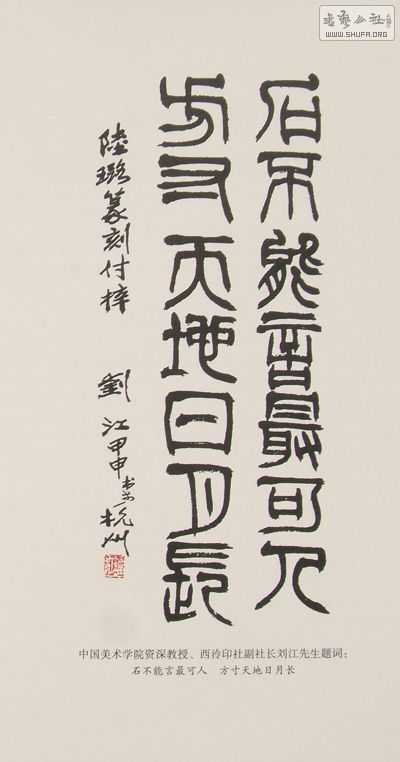 書藝公社
WWW.SHUFA.ORG
石不能言最可人
方寸天地日月長
陸璐篆刻付梓
劉江甲申書於杭州
中国美术学院资深教授、西泠印社副社长刘江先生题词：
石不能言最可人　方寸天地日月长